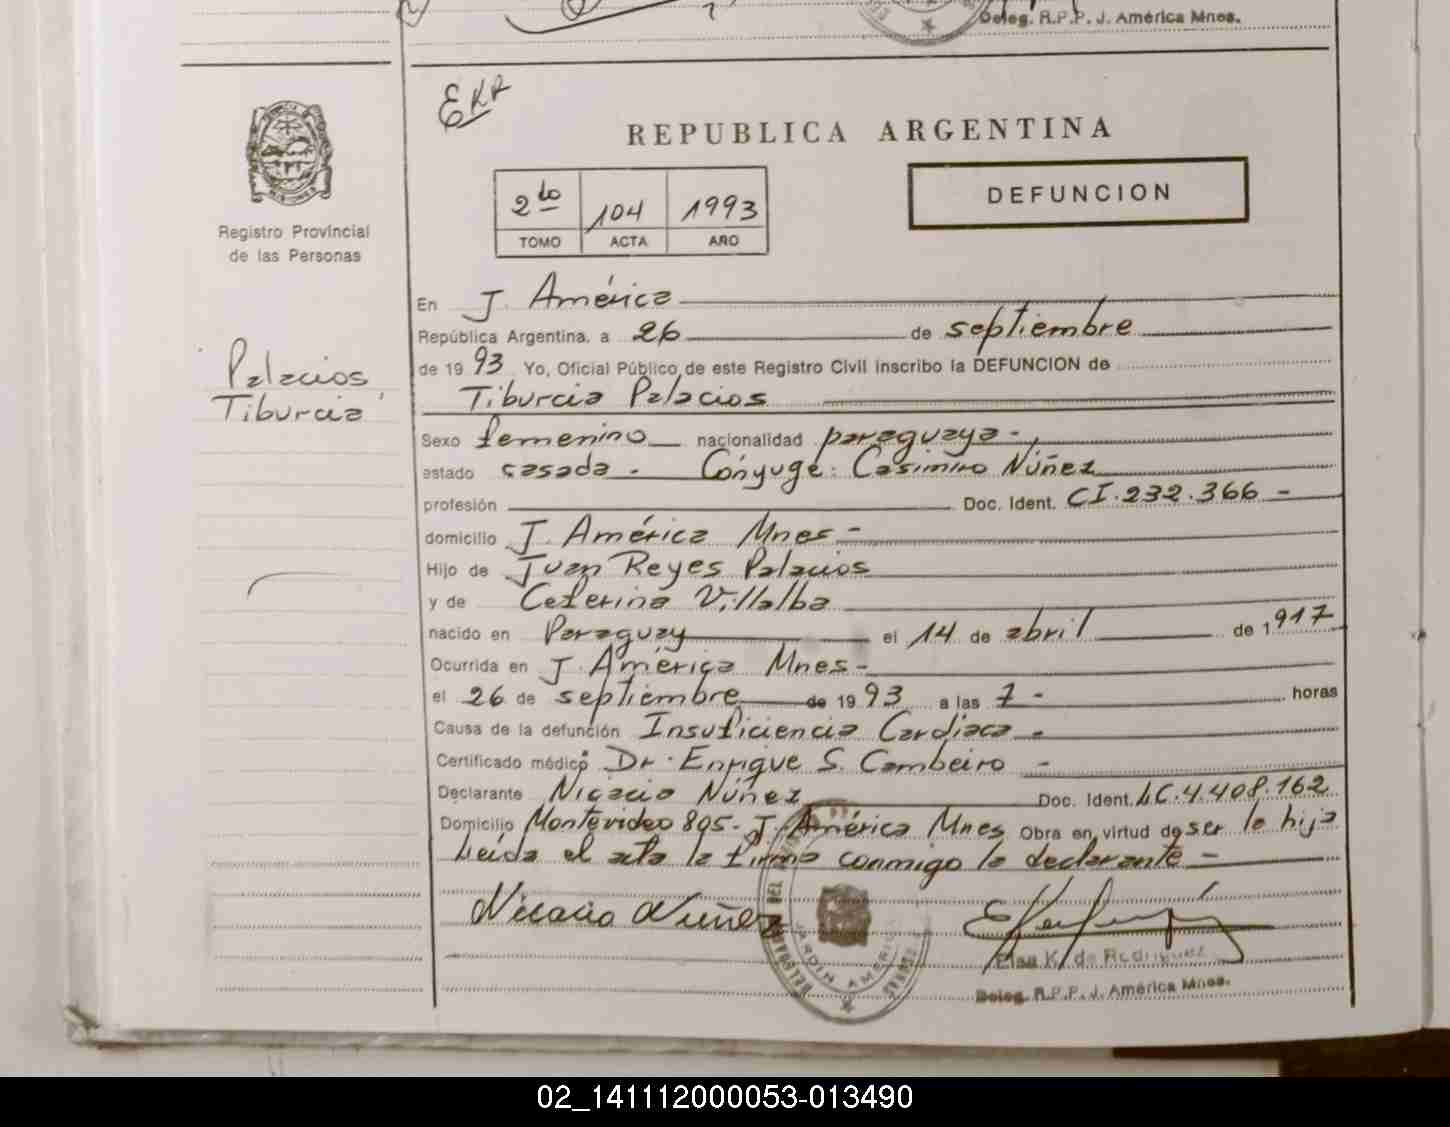 Deleg. R.P.P. J. América Mnes.
EKR
REPUBLICA ARGENTINA
DEFUNCION
2do 104 1993
TOMO ACTA AÑO
Registro Provincial
de las Personas
Palacios
Tiburcia
En J. América
República Argentina, a 26 de septiembre
de 1993 Yo, Oficial Público de este Registro Civil inscribo la DEFUNCION de
Tiburcia Palacios
Sexo femenino nacionalidad paraguaya-
estado casada. Cónyuge: Casimiro Núñez
profesión Doc. Ident. CI.232.366-
domicilio J. América Mnes-
Hijo de Juan Reyes Palacios
y de Ceferina Villalba
nacido en Paraguay el 14 de abril de 1917
Ocurrida en J. América Mnes-
el 26 de septiembre de 1993 a las 7- horas
Causa de la defunción Insuficiencia Cardiaca-
Certificado médico Dr. Enrique S. Cambeiro-
Declarante Nicacio Núñez Doc. Ident. LC.4.408.162
Domicilio Montevideo 895-J. América Mnes Obra en virtud de ser la hija
Leída el acta la firma conmigo la declarante-
Nicacio Nuñez
JARDIN AMERICA
Elsa K. de Rodriguez
Deleg. R.P.P. J. América Mnes.
02_141112000053-013490